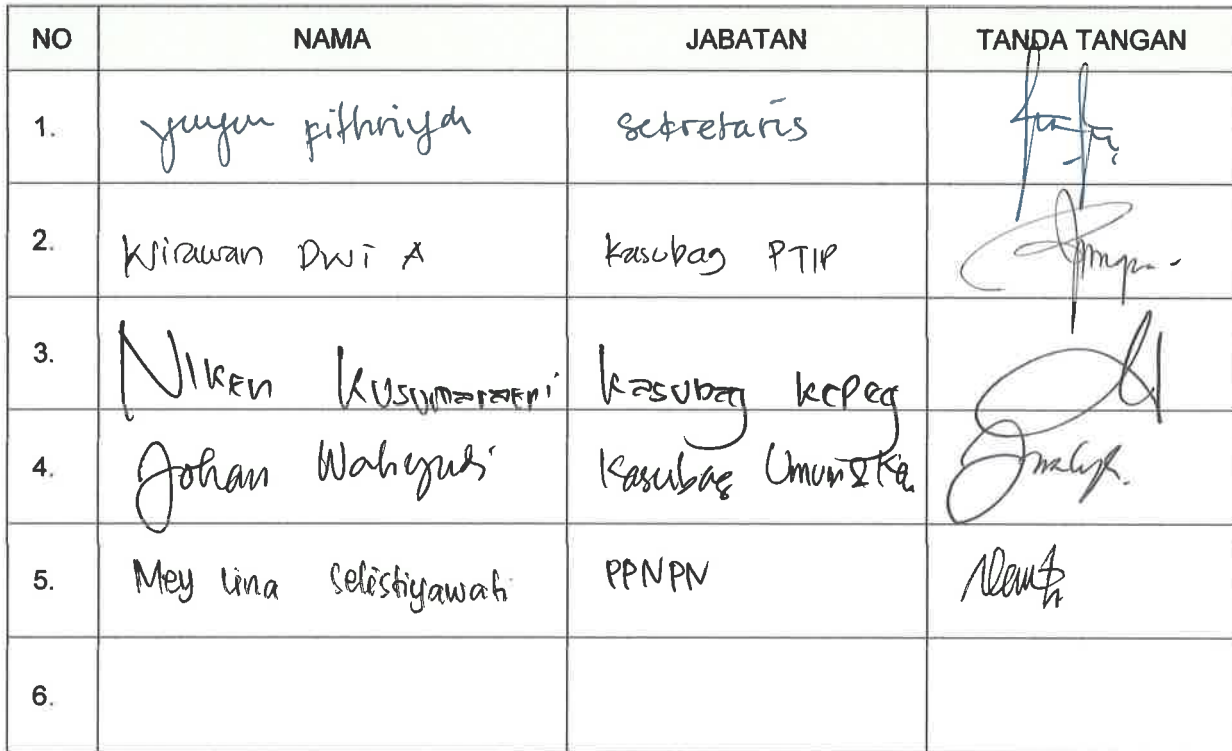 NO NAMA JABATAN TANDA TANGAN
1. Yuyun Fithriyah Sekretaris
2. Wirawan Dwi A Kasubag PTIP
3. Niken Kusumaraeni Kasubag Kepeg
4. Johan Wahyudi Kasubag Umum & Keu
5. Mey Lina Selistiyawati PPNPN
6.